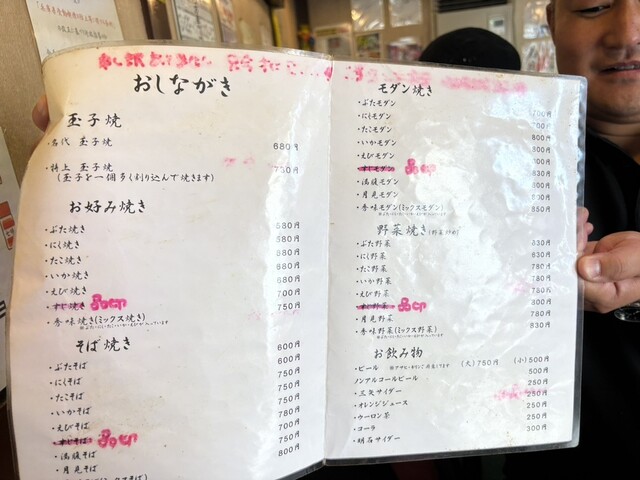 おしながき
玉子焼
・名代 玉子焼 680円
・特上 玉子焼 700円
(玉子を一個多く割り込んで焼きます)
お好み焼き
・ぶた焼き 530円
・にく焼き 530円
・たこ焼き 680円
・いか焼き 680円
・えび焼き 680円
・すじ焼き 品切 700円
・香味焼き(ミックス焼き) 750円
そば焼き
・ぶたそば 600円
・にくそば 600円
・たこそば 750円
・いかそば 750円
・えびそば 750円
・すじそば 品切 780円
・満腹そば 700円
・月見そば 750円
800円
モダン焼き
・ぶたモダン
・にくモダン 700円
・たこモダン 700円
・いかモダン 800円
・えびモダン 800円
・すじモダン 品切 800円
・満腹モダン 830円
・月見モダン 800円
・香味モダン(ミックスモダン) 850円
野菜焼き(野菜炒め)
・ぶた野菜 630円
・にく野菜 630円
・たこ野菜 780円
・いか野菜 780円
・えび野菜 780円
・すじ野菜 品切 800円
・月見野菜 780円
・香味野菜(ミックス野菜) 830円
お飲み物
・ビール (大)750円 (小)500円
ノンアルコールビール 500円
・三矢サイダー 250円
・オレンジジュース 250円
・ウーロン茶 250円
・コーラ 250円
・明石サイダー 300円